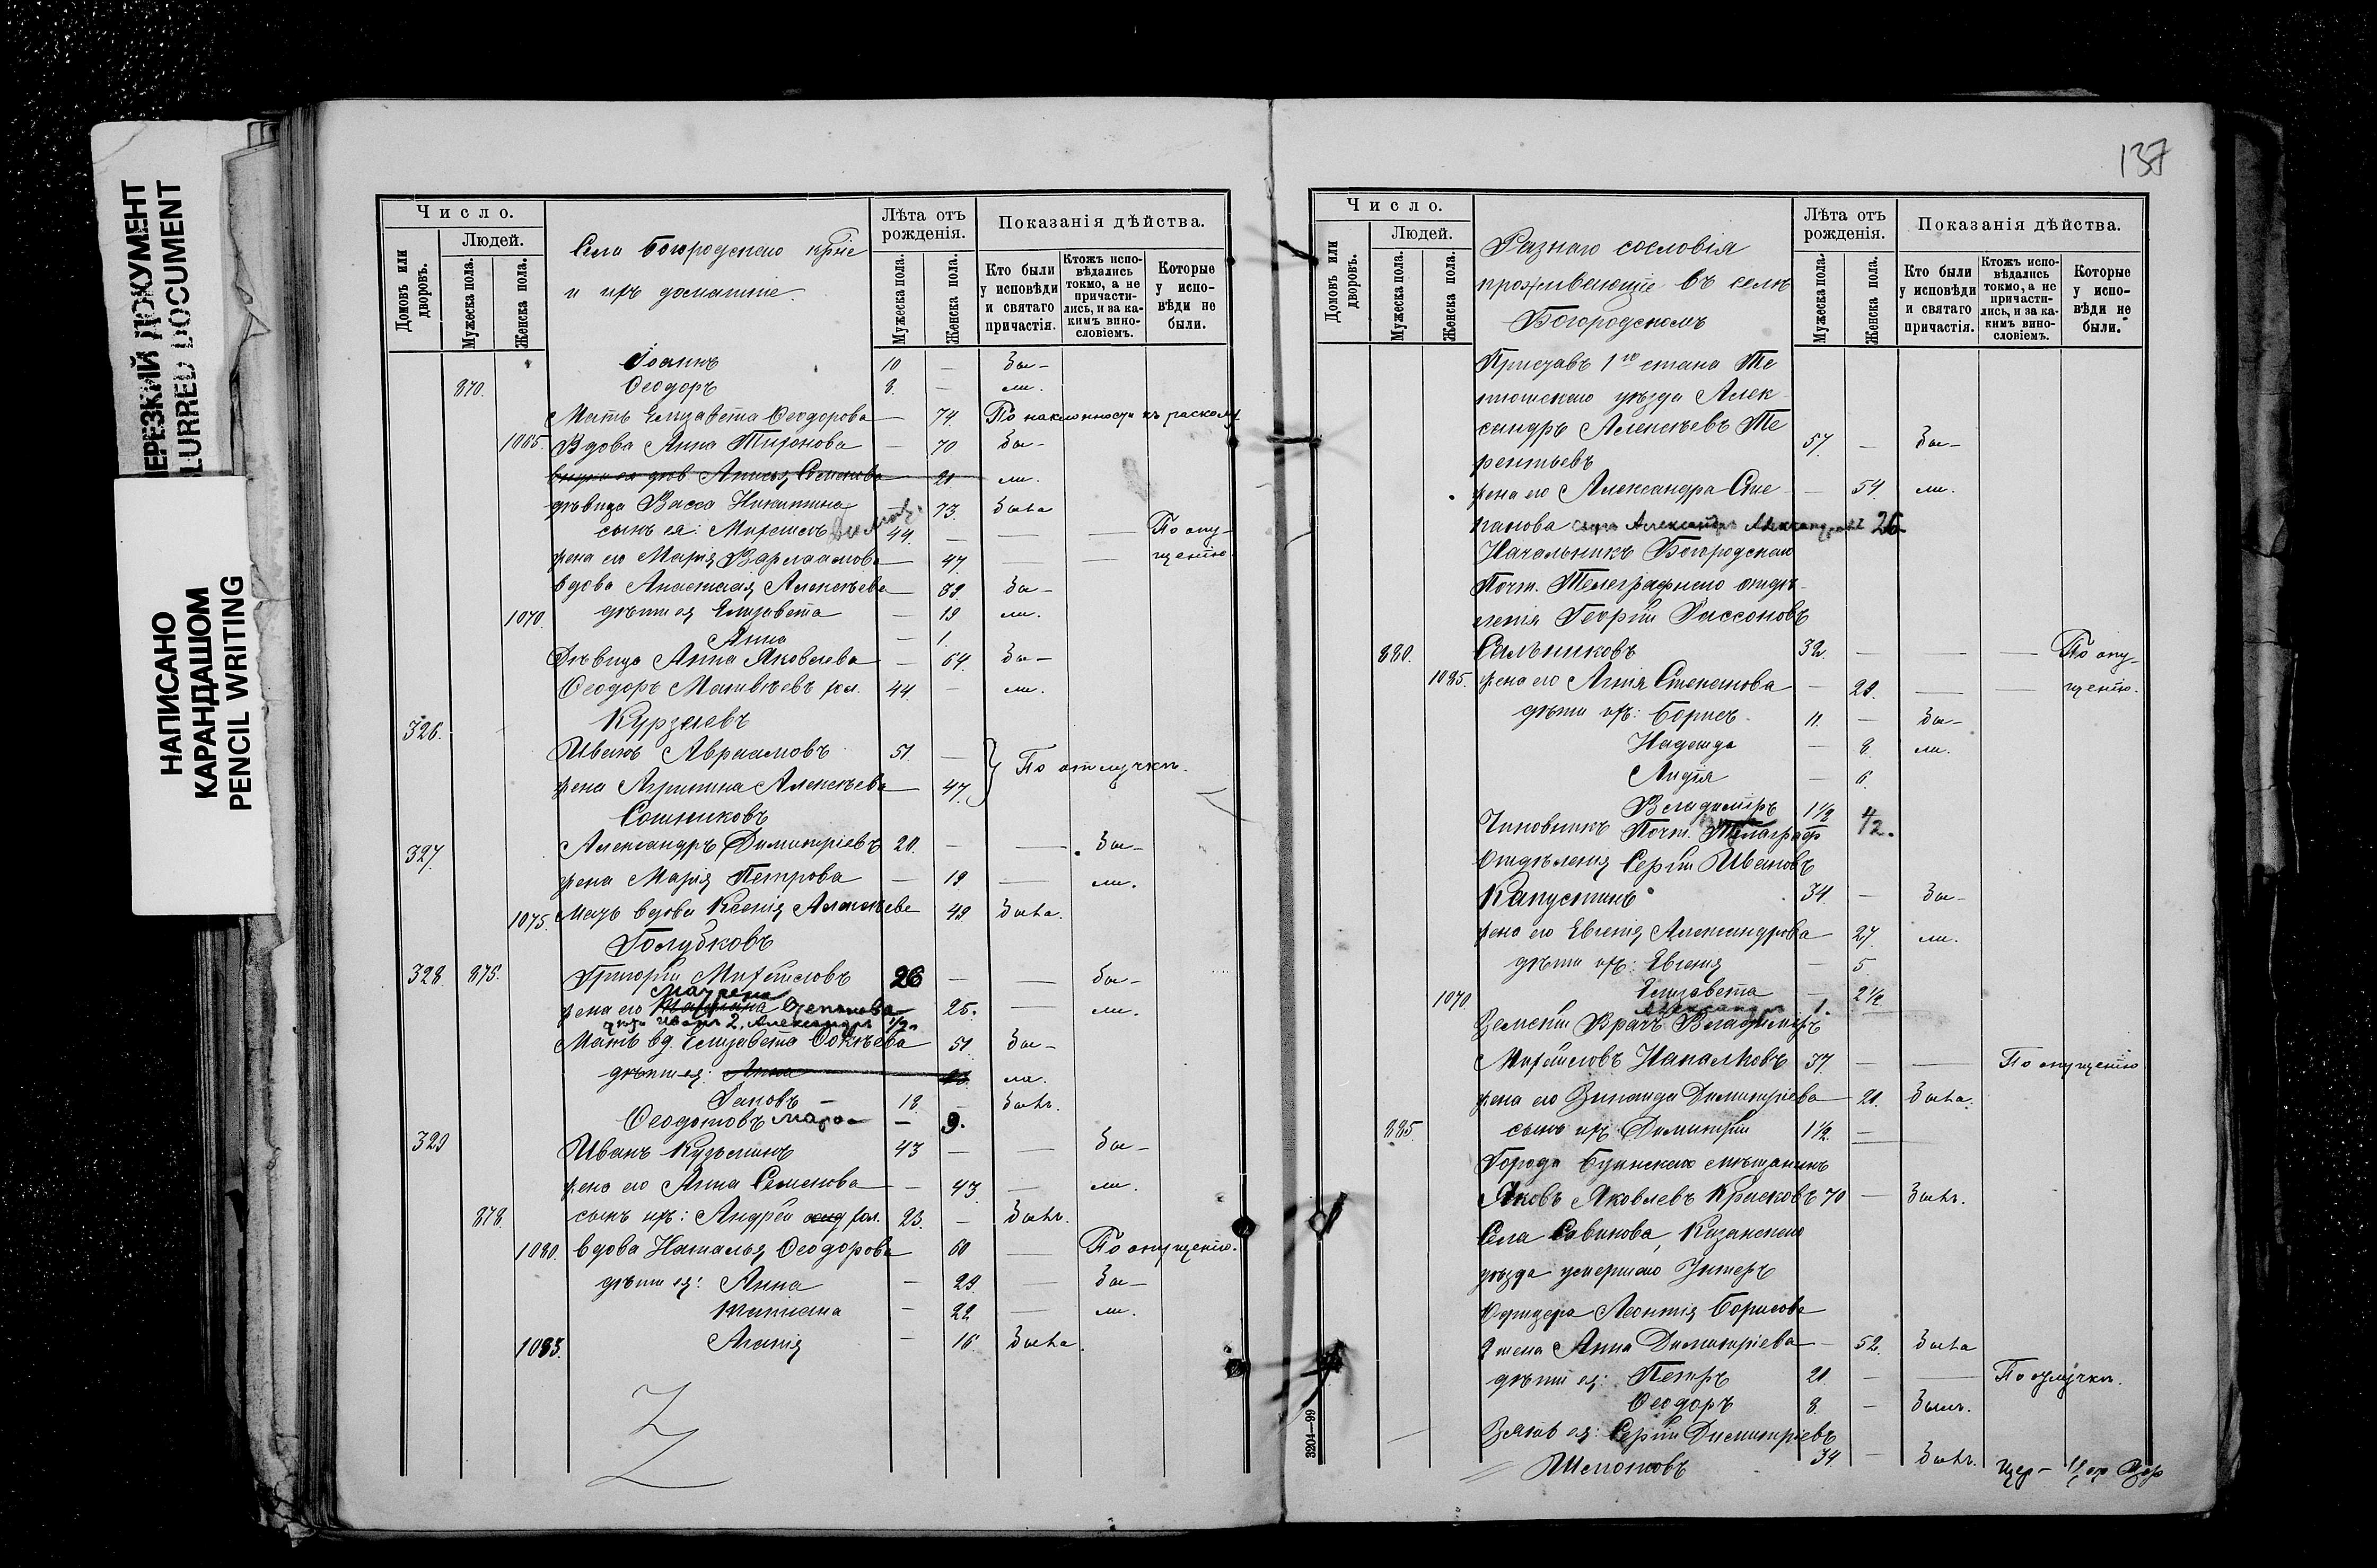 НЕРЕЗКИЙ ДОКУМЕНТ
BLURRED DOCUMENT
НАПИСАНО
КАРАНДАШОМ
PENCIL WRITING
Число.
Людей.
Домовъ или дворовъ.
Мужеска пола.
Женска пола.
Села Богородскаго
и ихъ домашніе.
Лѣта отъ рожденія.
Мужеска пола.
Женска пола.
Показанія дѣйства.
Кто были у исповѣди и святаго причастія.
Ктожъ исповѣдались токмо, а не причастились, и за какимъ винословіемъ.
Которые у исповѣди не были.
Іоаннъ 10 — бы-
870. Ѳеодоръ 8. ли.
Мать Елизавета Ѳеодорова — 74. По наклонности къ расколу
1065. Вдова Анна Тихонова — 70 бы-
Семенова 21 ли.
дѣвица Васса Никитина — 73. была
сынъ ея: 44. — — — По опу-
жена его Марія Варлаамова — 47. — — щенію.
вдова Анастасія Алексѣева — 39. бы-
1070. дѣти ея Елизавета — 19 ли.
Анна — 1.
Дѣвица Анна Яковлева — 64. бы-
Ѳеодоръ Матвѣевъ хол. 44. — ли.
326.
Иванъ Авраамовъ 51. — По отлучкѣ.
жена Агрипина Алексѣева — 47.
Сошниковъ
327. Александръ Димитріевъ 20. — — бы-
жена Марія Петрова — 19 — ли.
1075. Мать вдова Ксенія Алексѣева 49. была.
Голубковъ
328. 875. Григорій Михайловъ 26 — — бы-
Мазрена
жена его Степанова 25. — ли.
Иванъ 2, Александръ 1/2
Мать вд. Елизавета 51. бы-
дѣти ея: Анна ли.
Іаковъ — 18. — былъ.
Ѳеодотовъ — 9.
329 Иванъ Кузьминъ 43 — — бы-
жена его Анна Семенова — 43. — ли.
878. сынъ ихъ: Андрей хол. 23. — былъ.
1080. вдова Наталья Ѳеодорова 60 — По опущенію.
дѣти ея: Анна — 29. — бы-
Татіана — 22 — ли.
1083. Агаѳія — 16. была.
137
Число.
Людей.
Домовъ или дворовъ.
Мужеска пола.
Женска пола.
Разнаго сословія
проживающіе въ селѣ
Богородскомъ
Лѣта отъ рожденія.
Мужеска пола.
Женска пола.
Показанія дѣйства.
Кто были у исповѣди и святаго причастія.
Ктожъ исповѣдались токмо, а не причастились, и за какимъ винословіемъ.
Которые у исповѣди не были.
Приставъ 1го стана Те
тюшскаго уѣзда Алек-
сандръ Алексѣевъ Те 57. — бы-
рентьевъ
жена его Александра Сте — 54. ли.
панова сынъ Александръ 26
Начальникъ Богородскаго
Почт. Телеграфнаго отдѣ-
ленія Георгій
880. Сальниковъ 32. — — — По опу-
1085. жена его Агнія — 29. — — щенію.
дѣти ихъ: Борисъ 11. — бы-
Надежда — 8. ли.
Лидія — 6.
Владиміръ 1 1/2
Чиновникъ Почт. Телеграф
Отдѣленія Сергій Ивановъ
Капустинъ 34. — бы-
жена его Евгенія Александрова 27. ли.
дѣти ихъ: Евгенія — 5.
1070. Елизавета — 2 1/2
Александръ 1.
Земскій Врачъ Владиміръ
Михайловъ Напалковъ 37. — — По опущенію
жена его Зинаида Димитріева 21. была.
885. сынъ ихъ Димитрій 1 1/2. —
Города Буинска мѣщанинъ
Яковъ Яковлевъ 70 — былъ.
Села Савинова, Казанскаго
уѣзда умершаго Унтеръ
Офицера Леонтія Борисова
жена Анна Димитріева — 52. была
дѣти ея: Петръ 21. — — По отлучкѣ.
Ѳеодоръ 8. — былъ.
Зять ея: Сергій Димитріевъ
34. — былъ.
3204—99